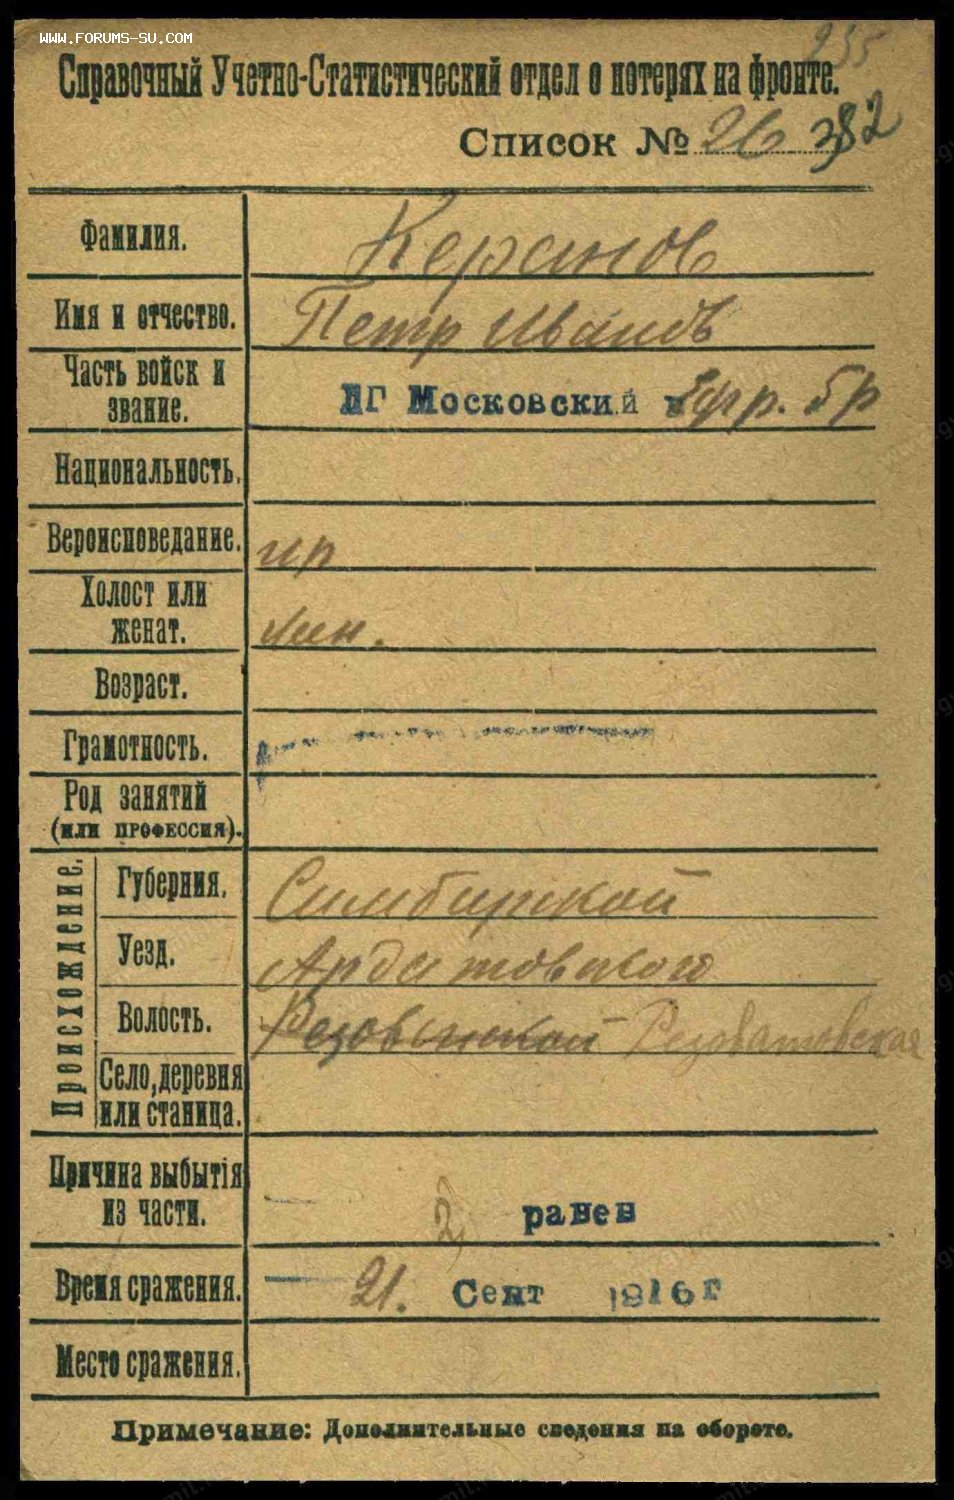 WWW.FORUMS-SU.COM
235
Справочный Учетно-Статистический отдел о потерях на фронте.
Список № 26 382
Фамилия. Керанов
Имя и отчество. Петр Иванов
Часть войск и звание. ЛГ Московский ефр. бр
Национальность.
Вероисповедание. пр
Холост или женат.
Возраст.
Грамотность.
Род занятий
(или профессия).
Происхождение.
Губерния. Симбирской
Уезд. Ардатовского
Волость. Резоватовская
Село, деревня или станица.
Причина выбытія из части. 2) ранен
Время сражения. 21. Сент 1916 г
Место сражения.
Примечание: Дополнительные сведения на обороте.